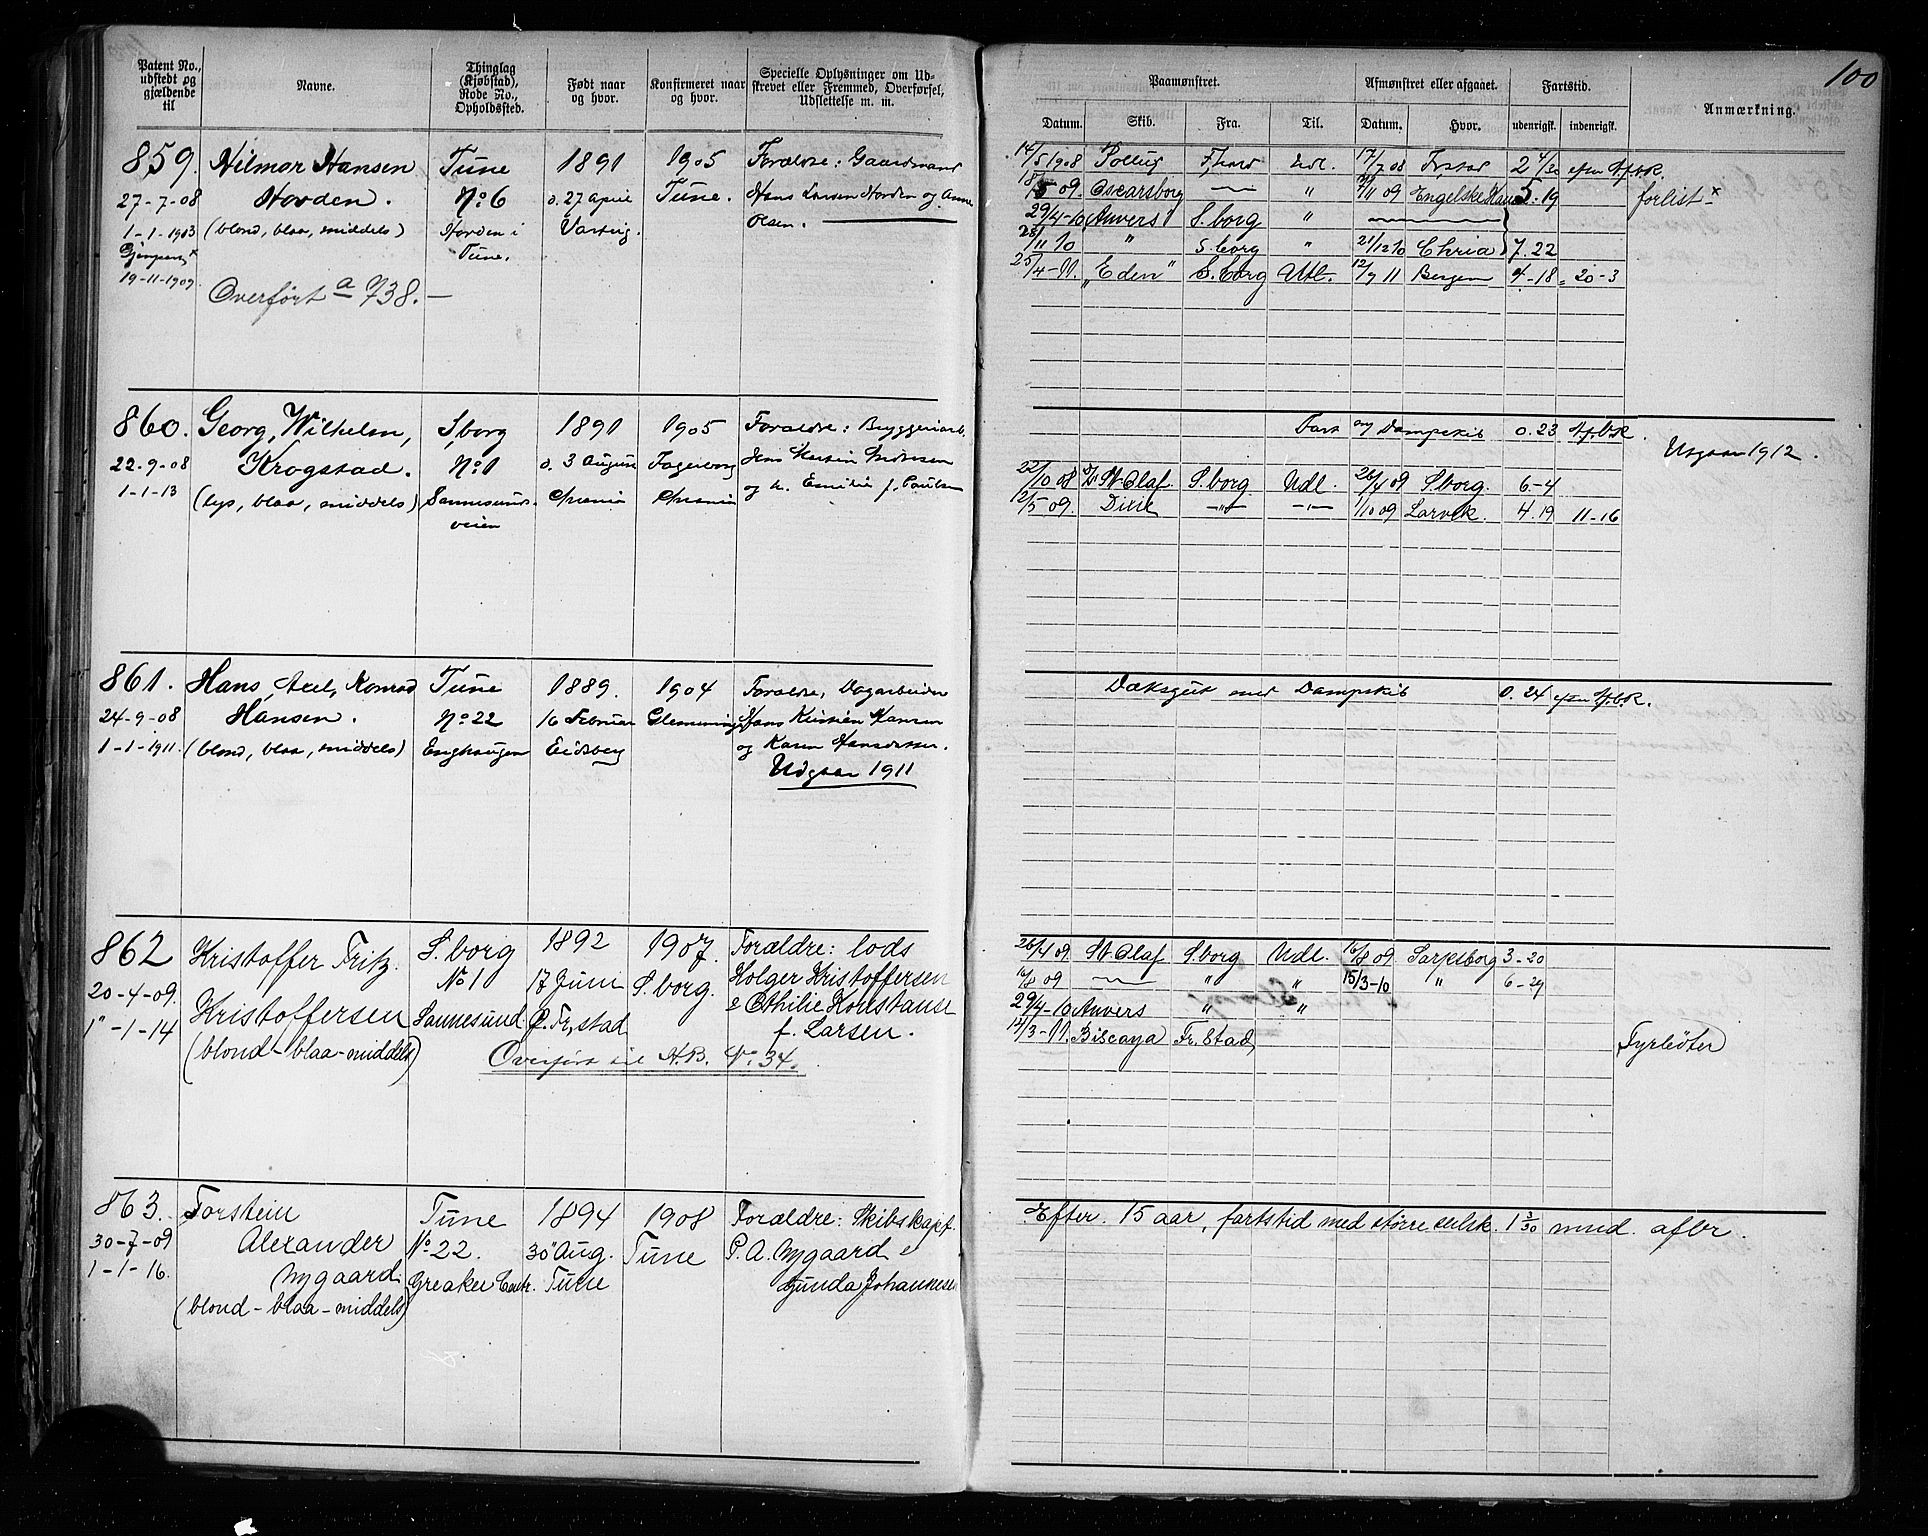 100
Patent No., udstedt og gjældende til
Navne.
Thinglag (Kjøbstad), Rode No., Opholdssted.
Født naar og hvor.
Konfirmeret naar og hvor.
Specielle Oplysninger om Udskrevet eller Fremmed, Overførsel, Udslettelse m. m.
Paamønstret.
Afmønstret eller afgaaet.
Fartstid.
Anmærkning.
Datum. Skib. Fra. Til. Datum. Hvor. udenrigsk. indenrigsk.
859. Hilmar Hansen Tune 1891 1905 Forældre: Gaardmand
27-7-08 Norden. No 6 d. 27 April Tune. Hans Larsen Norden og Anne
1-1-1913 (blond, blaa, middels) Norden i Varteig. Olsen.
Tune.
19-11-1909
Overført a 738.-
14/5 1908 Pollux Udl. 17/7 08
5 09. Oscarsborg " 11 09 Engelske 5.19 forlist x
29/4-10 Anvers S.borg "
11 10 " S.borg " 21/12 10 Chria 7.22
25/4-11. "Eden" S.borg Utl. 12/9 11 Bergen 4-18 20-3
860. Georg, Wilhelm, S.borg 1891 1905 Forældre:
22-9-08 Krogstad. No 1 d. 3 August Fagerborg Jens
1-1-13 (lys, blaa, middels) Sannesunds- og h. Emilie f. Paulsen
veien
Fart Dampskib 0.23 Udgaar 1912.
22/10 08 D/S St Olaf S.borg Udl. 26/4 09 S.borg. 6-4
12/5 09. Dixie -"- -"- 1/10 09 Larvik. 4.19 11-16
861. Hans, Axel, Konrad Tune 1889. 1904 Forældre, Dagarbeider
24-9-08 Hansen. No 22 16 Februar Glemminge Hans Kristian Hansen
1-1-1911. (blond, blaa, middels) Enghaugen Eidsberg og Karen
Udgaar 1911
Dæksgut med Dampskib 0.24
862 Kristoffer Fritz. S.borg 1892 1907. Forældre: lods
20-4-09. No 1 17 Juni S.borg. Holger Kristoffersen
1"-1-14 Kristoffersen Sannesund P. Fr.stad & Othilie Konstanse
(blond-blaa-middels) f. Larsen.
Overført til A.B. No. 34.
26/4 09. St Olaf S.borg Udl. 16/8 09 Sarpsborg 3-20
16/8 09 " " 15/3-10 " 6-29
29/4-10 Anvers " "
13/3-11. Biscaya Fr.Stad Fyrbøter
863. Torstein Tune 1894 1908 Forældre: Skibskapt.
30-7-09 Alexander No 22. 30 Aug. Tune P. A. Nygaard &
1-1-16. Nygaard. Greaker Tune Gunda Johannesen
(blond-blaa-middels)
Efter 15 aar, fartstid med større seilsk. 1 3/30 mnd.